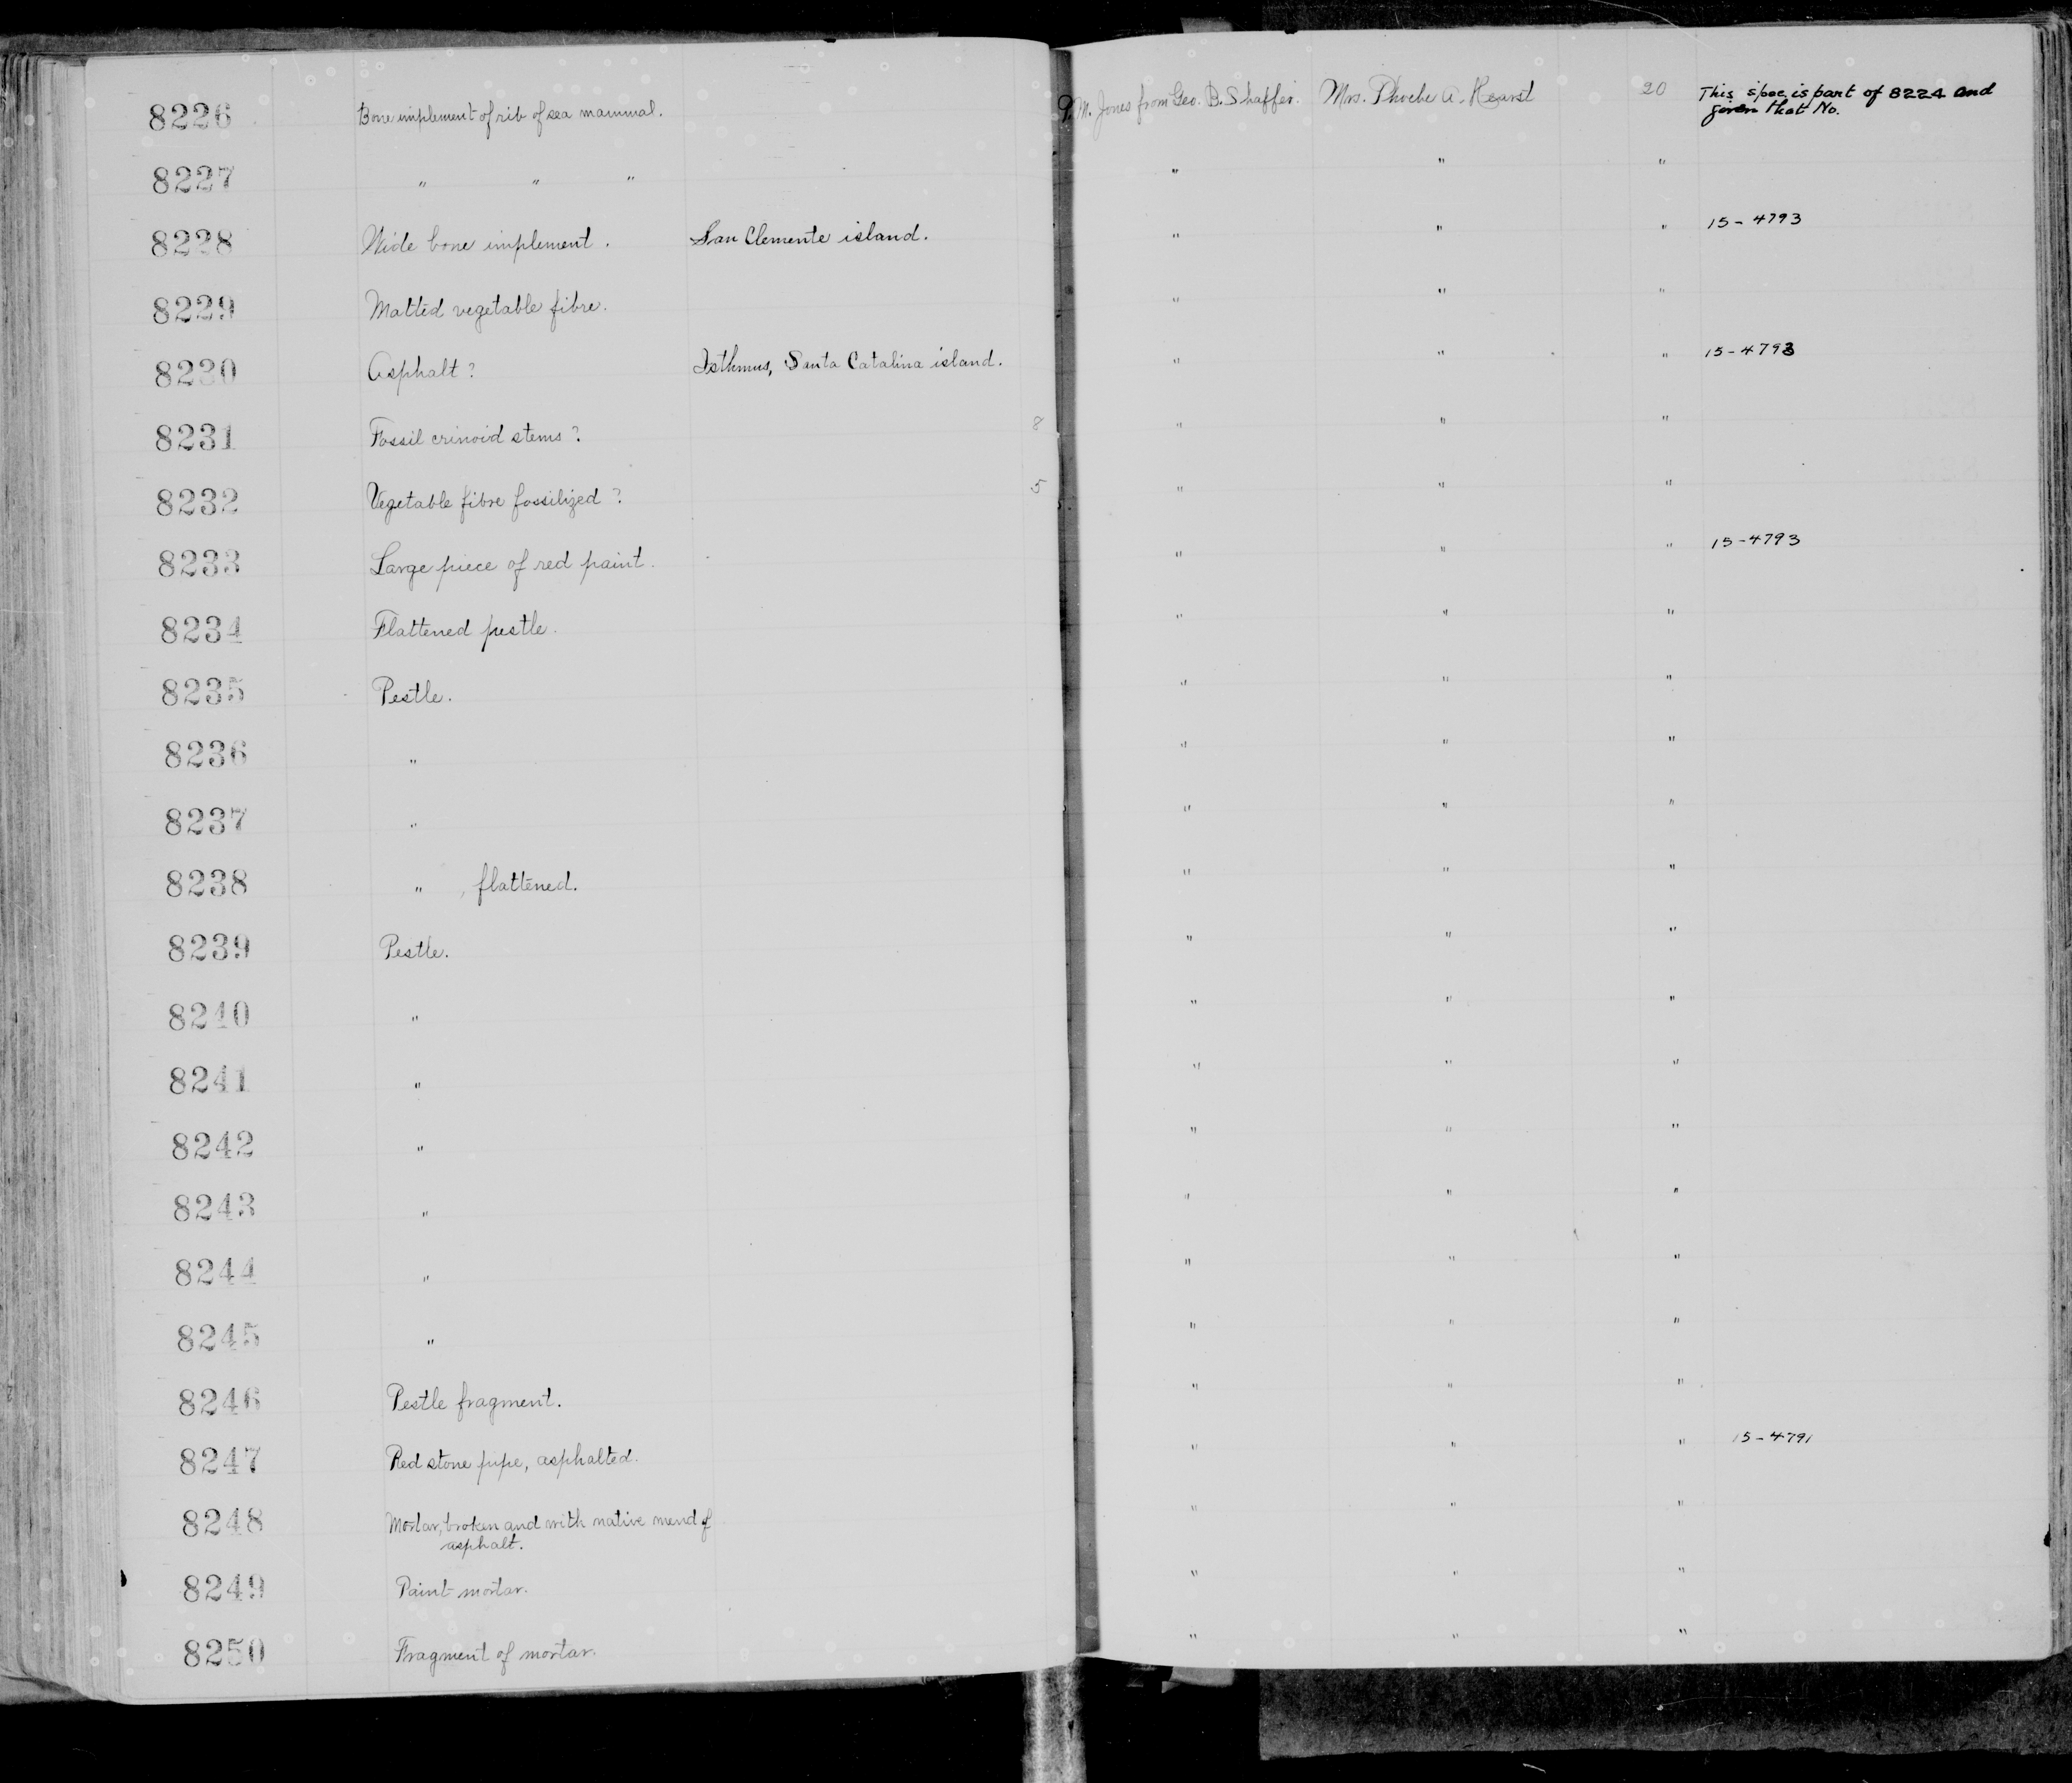 8226 Bone implement of rib of sea mammal. P. M. Jones from Geo. B. Shaffer. Mrs. Phoebe A. Hearst 20 This spec is part of 8224 and
given that No.
8227 " " " " " "
8228 Wide bone implement. San Clemente island. " " " 15-4793
8229 Matted vegetable fibre. " " "
8230 Asphalt? Isthmus, Santa Catalina island. " " " 15-4793
8231 Fossil crinoid stems? 8 " " "
8232 Vegetable fibre fossilized? 5 " " "
8233 Large piece of red paint. " " " 15-4793
8234 Flattened pestle. " " "
8235 Pestle. " " "
8236 " " " "
8237 " " " "
8238 " , flattened. " " "
8239 Pestle. " " "
8240 " " " "
8241 " " " "
8242 " " " "
8243 " " " "
8244 " " " "
8245 " " " "
8246 Pestle fragment. " " "
8247 Red stone pipe, asphalted. " " " 15-4791
8248 Mortar, broken and with native mend of
asphalt. " " "
8249 Paint-mortar. " " "
8250 Fragment of mortar. " " "